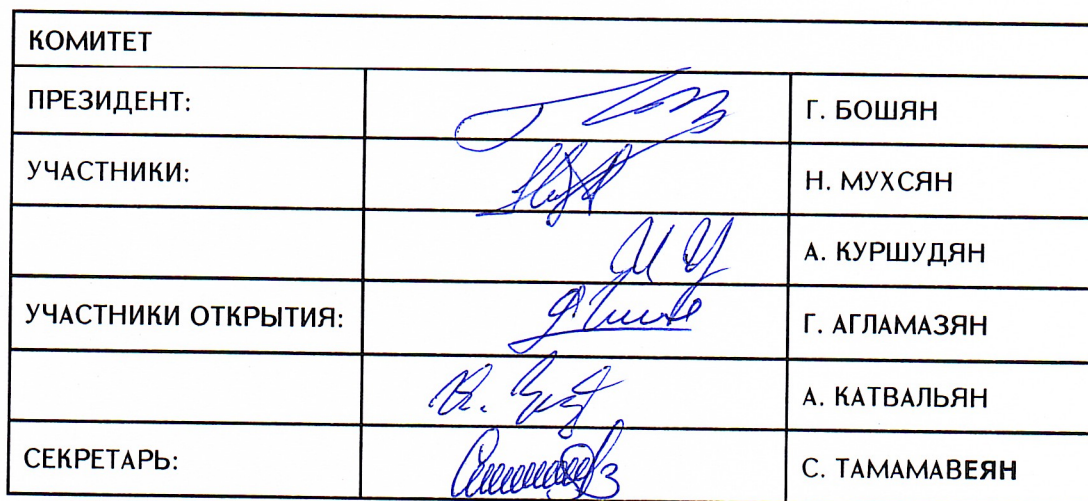 КОМИТЕТ
ПРЕЗИДЕНТ: Г. БОШЯН
УЧАСТНИКИ: Н. МУХСЯН
А. КУРШУДЯН
УЧАСТНИКИ ОТКРЫТИЯ: Г. АГЛАМАЗЯН
А. КАТВАЛЬЯН
СЕКРЕТАРЬ: С. ТАМАМАВЕЯН